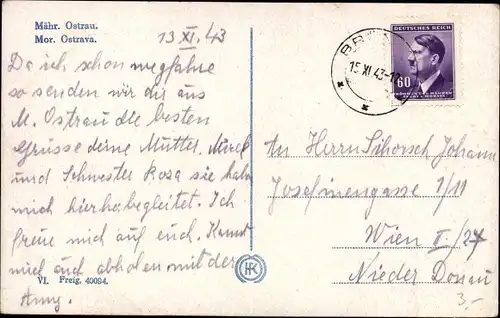 Mähr. Ostrau.
Mor. Ostrava.
13 XI. 43
Da ich schon wegfahre
so senden wir dir aus
M. Ostrau die besten
Grüsse deine Mutter,
und Schwester Rosa sie hat
mich hierher begleitet. Ich
freue mich auf euch. Kannst
mich auch abholen mit der
Anny.
VI. Freig. 40094.
HK
DEUTSCHES REICH
60
BÖHMEN UND MÄHREN
15 XI 43
An Herrn Johann
Josefinengasse 1/11
Wien II/27
Nieder Donau
3.-